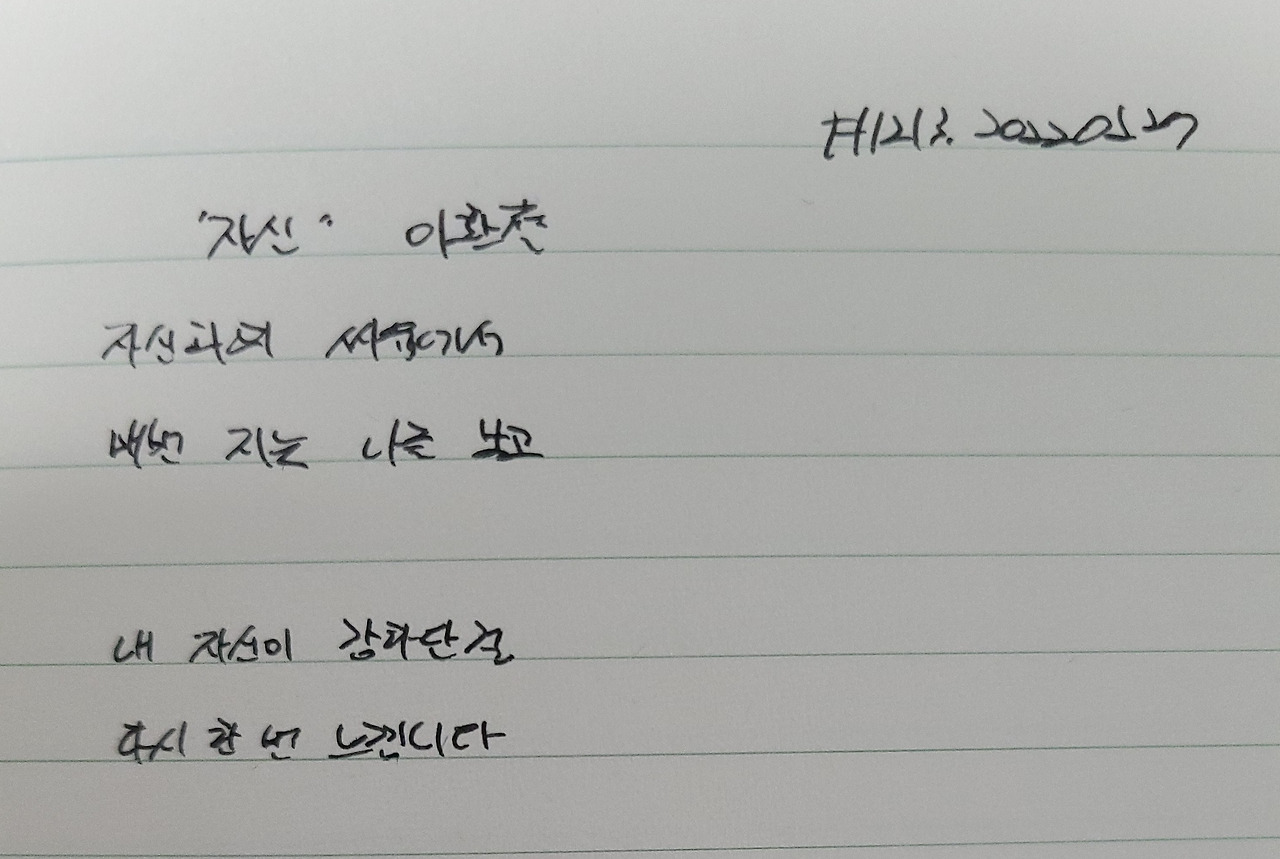 #1213. 20220527
"자신" 이환천
자신과의 싸움에서
매번 지는 나를 보고
내 자신이 강하단걸
다시 한 번 느낀니다